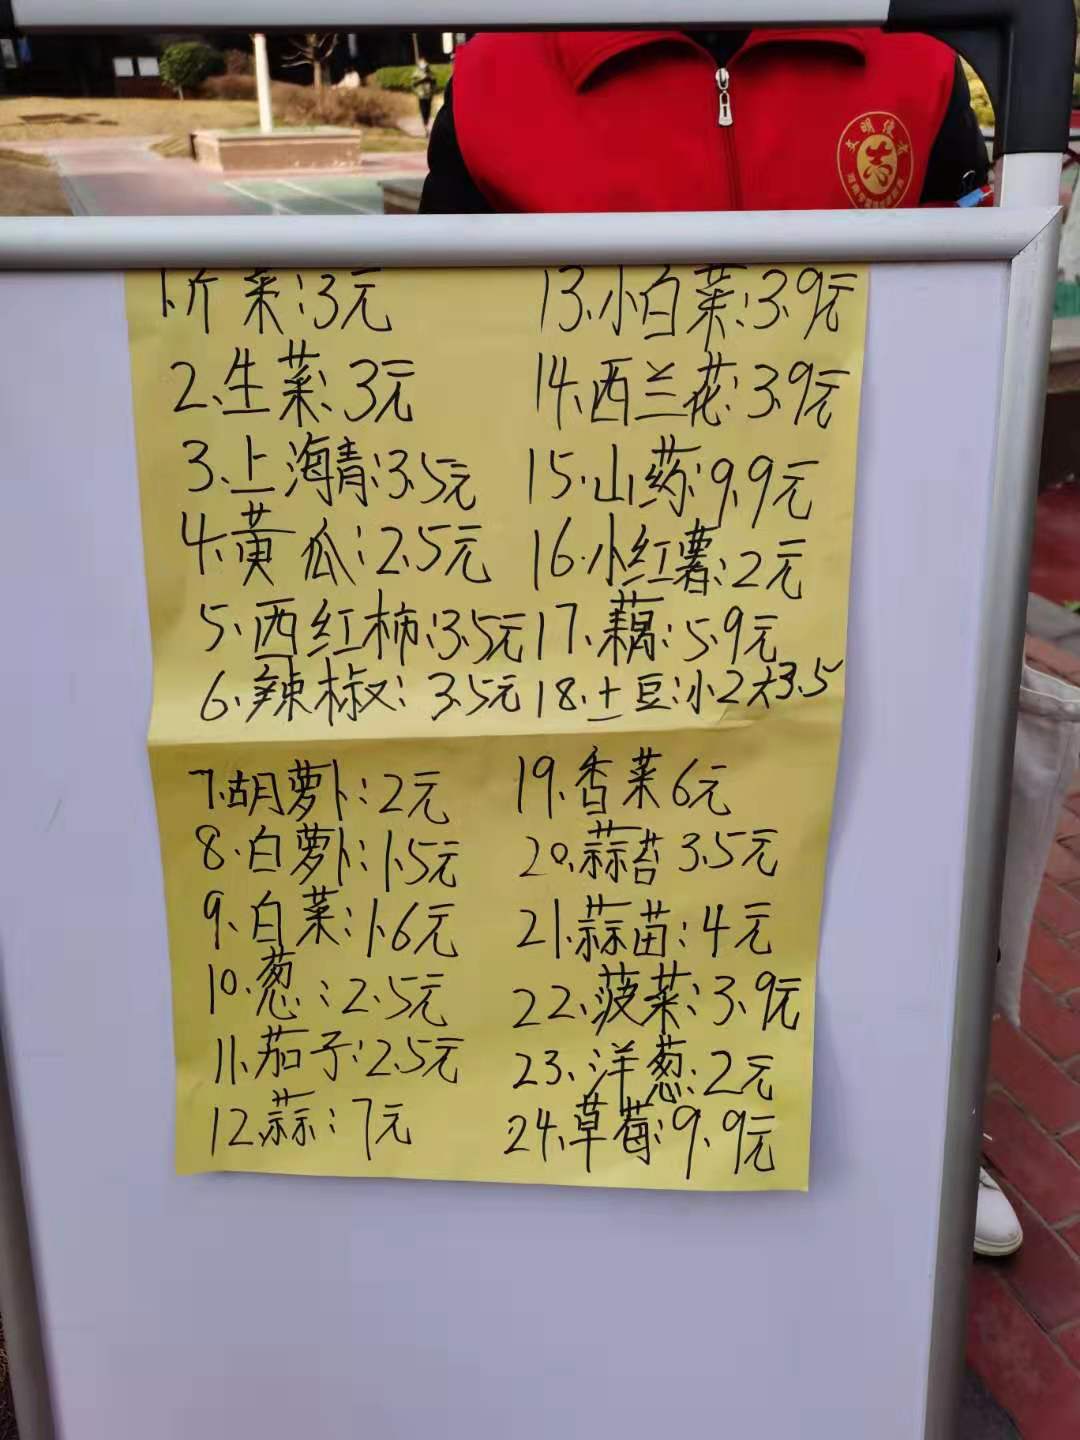 文明使者
1.芹菜:3元
2.生菜:3元
3.上海青:3.5元
4.黄瓜:2.5元
5.西红柿:3.5元
6.辣椒:3.5元
7.胡萝卜:2元
8.白萝卜:1.5元
9.白菜:1.6元
10.葱:2.5元
11.茄子:2.5元
12.蒜:7元
13.小白菜:3.9元
14.西兰花:3.9元
15.山药:9.9元
16.小红薯:2元
17.藕:5.9元
18.土豆:小2大3.5
19.香菜6元
20.蒜苔3.5元
21.蒜苗:4元
22.菠菜:3.9元
23.洋葱:2元
24.草莓:9.9元